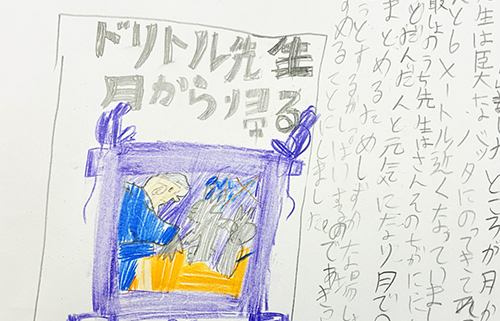 ドリトル先生
月から帰る
ところが月か
生は巨大なバッタにのってきて
と6メートル近くなっていま
しょのうち先生はさんそのちがいに
とだんだんと元気になり月での
まとめるためしずかな場し
うとするがしっぱいするのであきら
めることにしました。